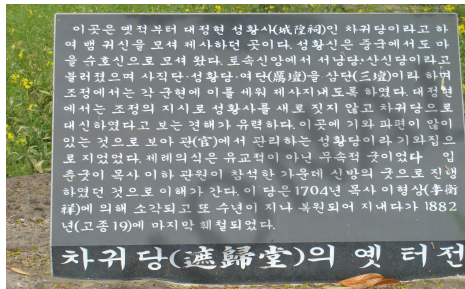 이곳은 옛적부터 대정현 성황사(城隍祠)인 차귀당이라고 하
여 뱀 귀신을 모셔 제사하던 곳이다. 성황신은 중국에서도 마
을 수호신으로 모셔 왔다. 토속신앙에서 서낭당·산신당이라고
불러졌으며 사직단·성황당·여단(厲壇)을 삼단(三壇)이라 하며
조정에서는 각 군현에 이를 세워 제사지내도록 하였다. 대정현
에서는 조정의 지시로 성황사를 새로 짓지 않고 차귀당으로
대신하였다고 보는 견해가 유력하다. 이곳에 기와 파편이 많이
있는 것으로 보아 관(官)에서 관리하는 성황당이라 기와집으
로 지었었다. 제례의식은 유교적이 아닌 무속적 굿이었다 입
춘굿이 목사 이하 관원이 참석한 가운데 신방의 굿으로 진행
하였던 것으로 이해가 간다. 이 당은 1704년 목사 이형상(李衡
祥)에 의해 소각되고 또 수년이 지나 복원되어 지내다가 1882
년(고종19)에 마지막 훼철되었다.
차귀당(遮歸堂)의 옛 터전